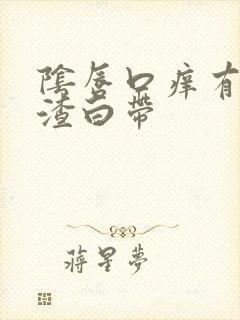 陰唇口痒有
渣白帶
蔣星夢